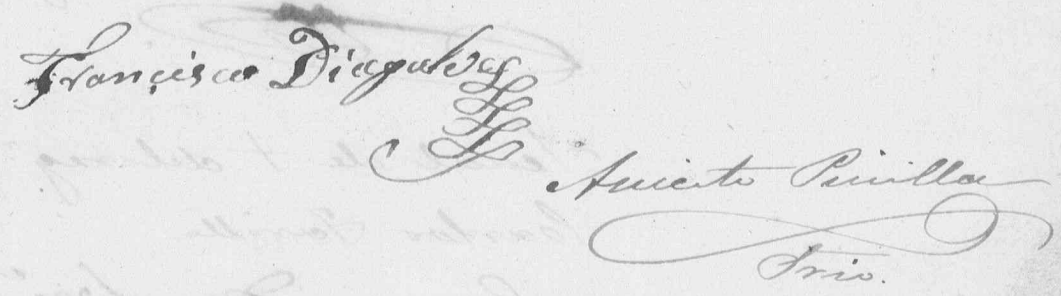 Francisco Diagalvez
Aniceto Pinilla
Srio.